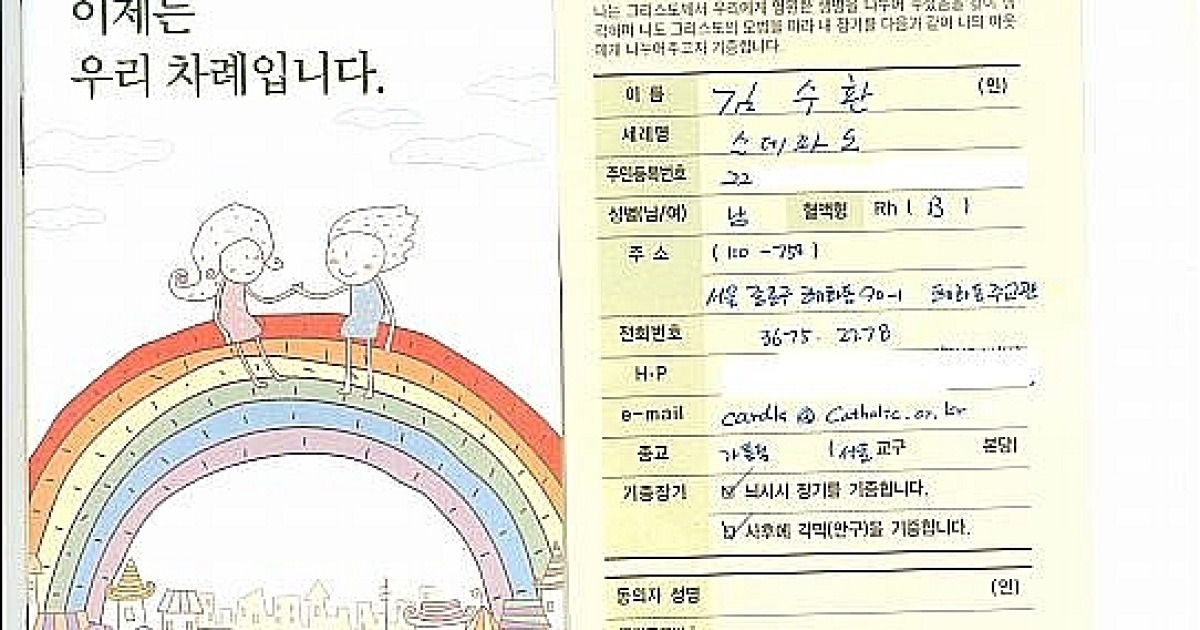 이제는
우리 차례입니다.
나는 그리스도께서 우리에게 영원한 생명을 나누어 주셨음을 깊이 생
각하며 나도 그리스도의 모범을 따라 내 장기를 다음과 같이 나의 이웃
에게 나누어주고자 기증합니다.
이 름 김 수 환 (인)
세례명 스테파노
주민등록번호 22
성별(남/여) 남 혈액형 Rh ( B )
주 소 (110 -758)
서울 종로구 혜화동 90-1 혜화동주교관
전화번호 3675. 2278
H·P
e-mail @ Catholic.or.kr
종교 가톨릭 (서울 교구 본당)
기증장기 뇌사시 장기를 기증합니다.
사후에 각막(안구)을 기증합니다.
동의자 성명 (인)